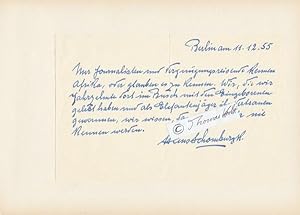 Berlin am 11.12.55
Nur Journalisten und Vergnügungsreisende kennen
Afrika, oder glauben es zu kennen. Wir, die wir
Jahrzehnte dort im Busch mit den Eingeborenen
gelebt haben und als Elefantenjäger
gewannen, wir wissen, nie
kennen werden.
© Thomas
Hans Schomburgk